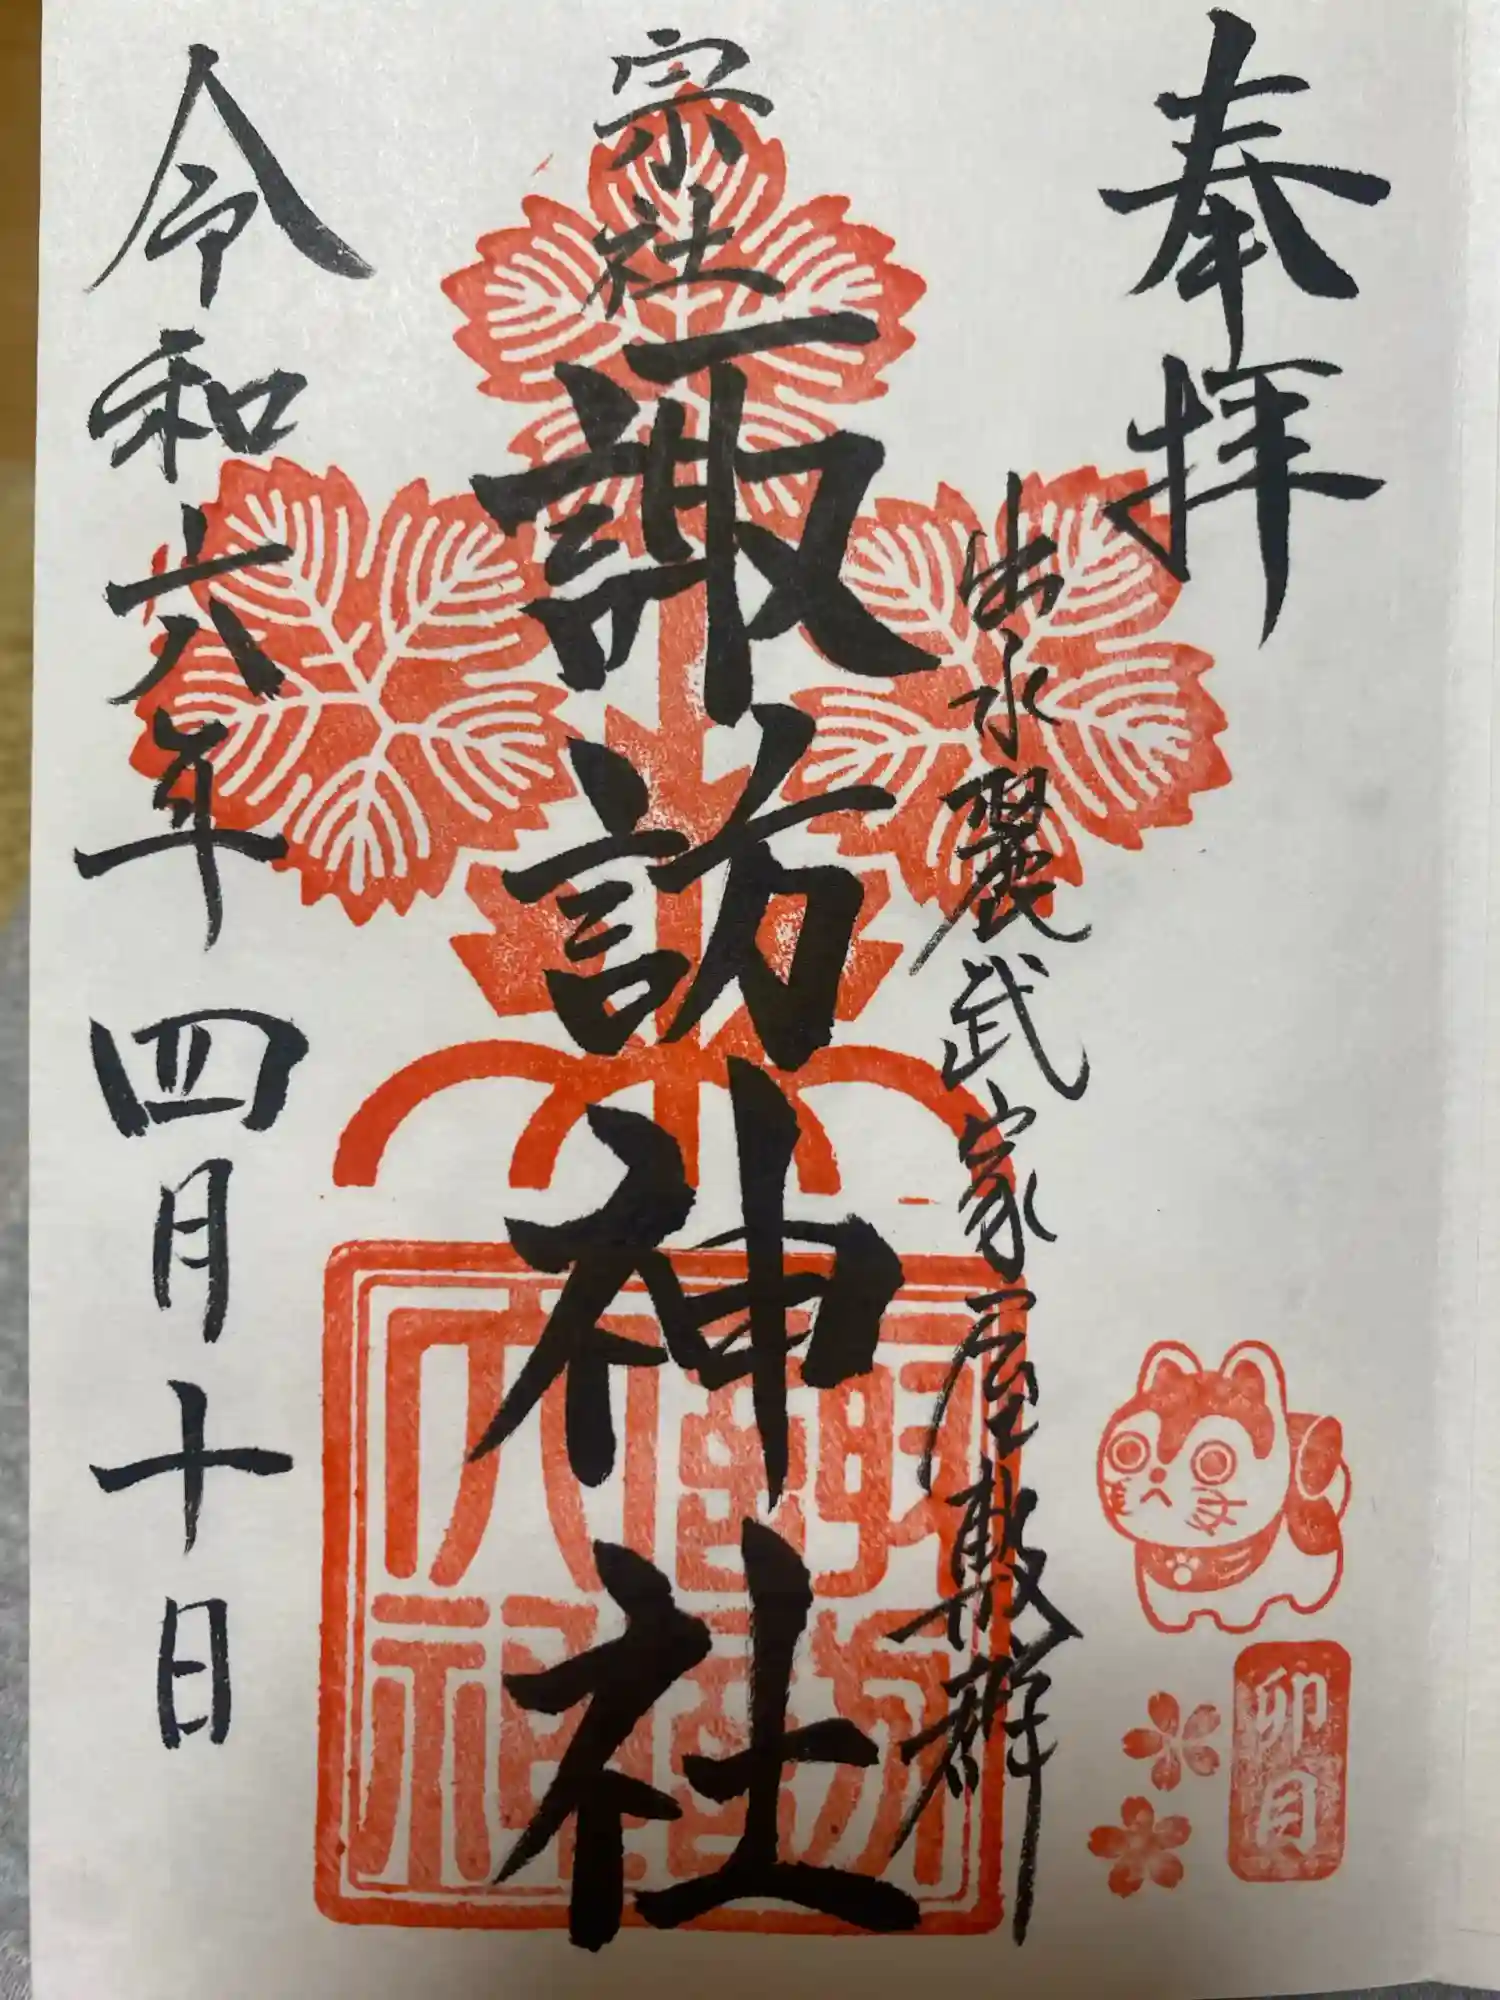 奉拝
出水麓武家屋敷群
卯月
宗社
諏訪神社
令和六年四月十日